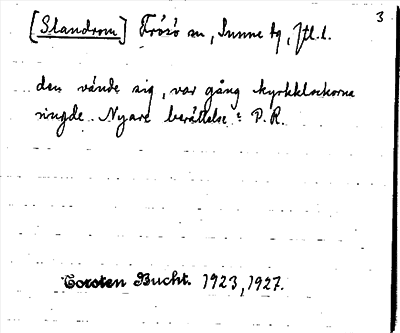 3
[Standrom] Frösö sn, Sunne tg, Jtl.l.
den vände sig, var gång kyrkklockorna
ringde. Nyare berättelse: P.R.
Torsten Bucht. 1923, 1927.